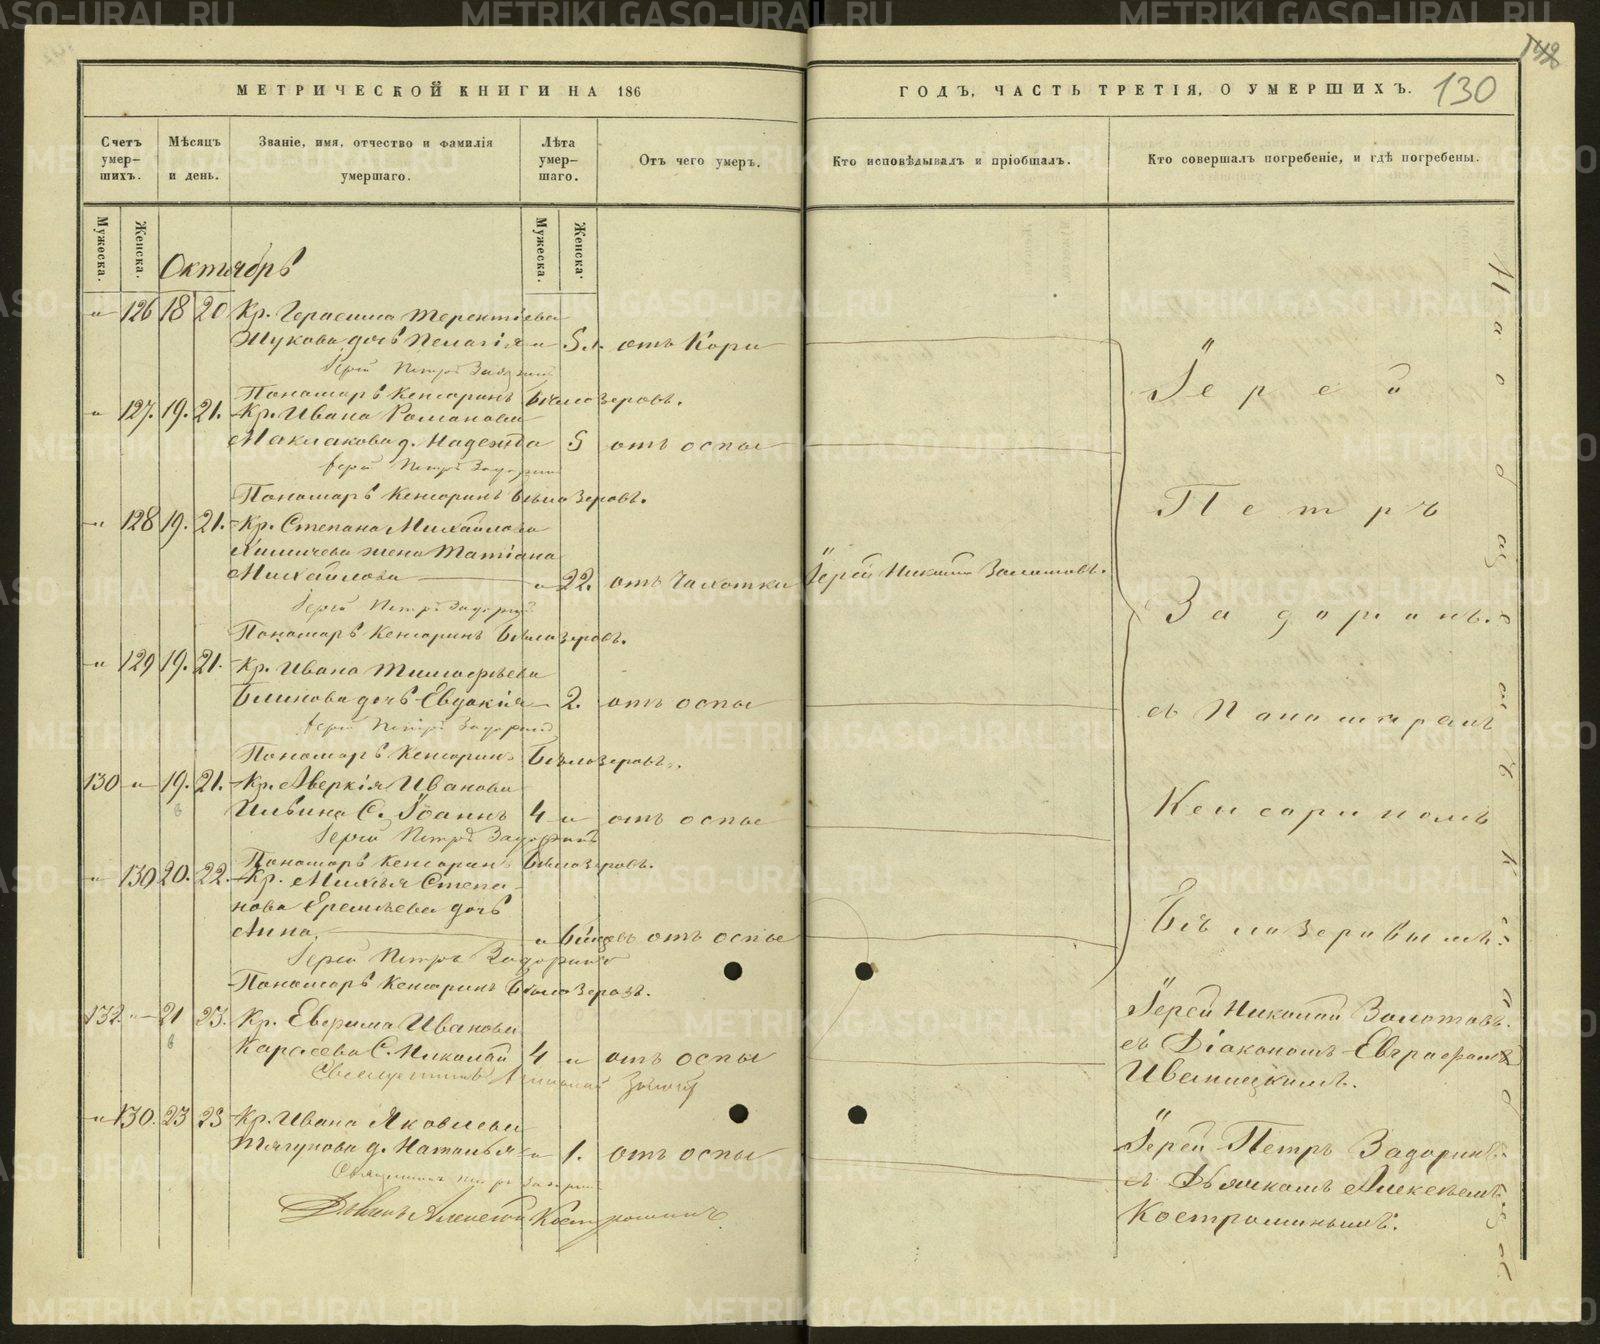 МЕТРИЧЕСКОЙ КНИГИ НА 186
ГОДЪ, ЧАСТЬ ТРЕТІЯ, О УМЕРШИХЪ.
130
Счетъ умер-шихъ.
Мѣсяцъ и день.
Званіе, имя, отчество и фамилія умершаго.
Лѣта умер-шаго.
Отъ чего умеръ.
Кто исповѣдывалъ и пріобщалъ.
Кто совершалъ погребеніе, и гдѣ погребены.
Мужеска.
Женска.
Мужеска.
Женска.
Октябрь
„ 126 18 20 Кр. Герасима Терентіева
Жукова дочь Пелагія „ 5 л. отъ Кори
Іерей Петръ Задоринъ
Пономарь Кенсоринъ Бѣлозеровъ.
„ 127. 19. 21. Кр. Ивана Романова
Маклакова д. Надежда 5 отъ оспы
Іерей Петръ Задоринъ
Пономарь Кенсоринъ Бѣлозеровъ.
„ 128 19. 21. Кр. Степана Михайлова
жена Татіана
Михайлова „ 22. отъ Чахотки Іерей Николай Золотовъ.
Іерей Петръ Задоринъ
Пономарь Кенсоринъ Бѣлозеровъ.
„ 129 19. 21. Кр. Ивана Тимофѣева
Блинова дочь Евдокія 2. отъ оспы
Іерей Петръ Задоринъ
Пономарь Кенсоринъ Бѣлозеровъ.
130 „ 19. 21. Кр. Аверкія Иванова
Ильина С. Іоаннъ 4 „ отъ оспы
Іерей Петръ Задоринъ
Пономарь Кенсоринъ Бѣлозеровъ.
„ 130 20. 22. Кр. Михѣя Степа-
нова Еремѣева дочь
Анна. „ 6 мцевъ отъ оспы
Іерей Петръ Задоринъ
Пономарь Кенсоринъ Бѣлозеровъ.
132. „ 21 23. Кр. Ефрима Иванова
Карасева С. Николай 4 „ отъ оспы
Священникъ Николай Золотовъ
„ 130. 23 23 Кр. Ивана Яковлева
Тягунова д. Наталья „ 1. отъ оспы
Священникъ Петръ Задоринъ
Дьячекъ Алексей Костроминъ
Іерей
Петръ
Задоринъ.
съ Пономаремъ
Кенсориномъ
Бѣлозеровымъ.
Іерей Николай Золотовъ.
съ Діакономъ Евграфомъ
Иваницкимъ.
Іерей Петръ Задоринъ.
съ Дьячкомъ Алексѣемъ
Костроминымъ.
METRIKI.GASO-URAL.RU